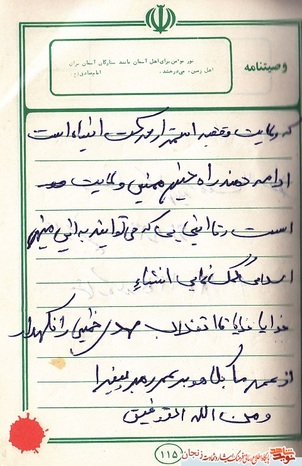 وصیتنامه
نور مؤمن برای اهل آسمان مانند ستارگان آسمان برای
اهل زمین، می‌درخشد. امام صادق (ع)
که ولایت وفقیه استمرار حرکت انبیاء است
ادامه دهنده راه حسین همین ولایت
است و تا آنجایی که می توانید به این میهن
اسلامی کمک نمایی انشاءالله
خدایا خدایا تا انقلاب مهدی خمینی را نگهدار
از عمر ما بکاه و بر عمر رهبر بیفزا
و من الله التوفیق
۱۱۵
زنجان